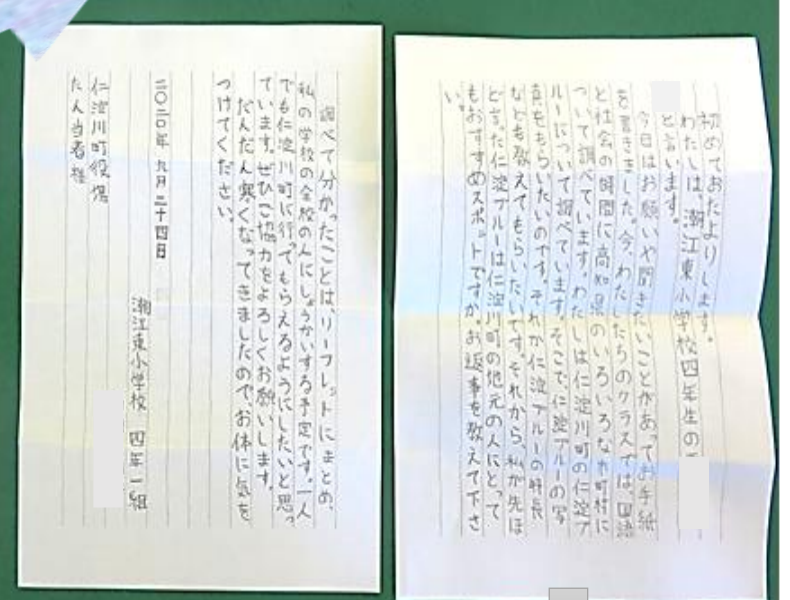 初めておたよりします。
わたしは、潮江東小学校四年生の
と言います。
今日はお願いや聞きたいことがあってお手紙
を書きました。今、わたしたちのクラスでは、国語
と社会の時間に高知県のいろいろな市町村に
ついて調べています。わたしは仁淀川町の仁淀ブ
ルーについて調べています。そこで、仁淀ブルーの写
真をもらいたいのです。それか仁淀ブルーの特長
なども教えてもらいたいです。それから、私が先ほ
ど言った仁淀ブルーは仁淀川町の地元の人にとって
もおすすめスポットですか。お返事を教えて下さ
い。
調べて分かったことは、リーフレットにまとめ、
私の学校の全校の人にしょうかいする予定です。一人
でも仁淀川町に行ってもらえるようにしたいと思っ
ています。ぜひご協力をよろしくお願いします。
だんだん寒くなってきましたので、お体に気を
つけてください。
二〇二〇年 九月 二十四日
潮江東小学校 四年一組
仁淀川町役場
たん当者様